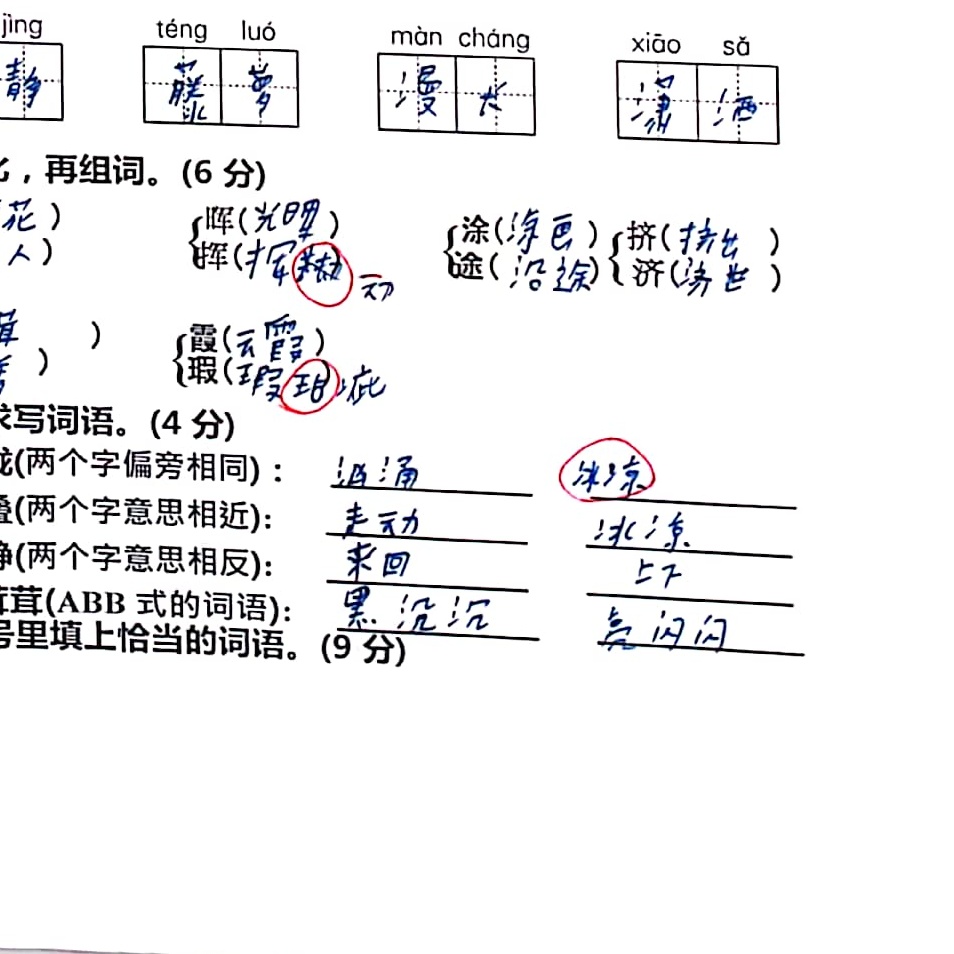 jìng téng luó màn cháng xiāo sǎ
静 藤 萝 漫 长 潇 洒
，再组词。(6 分)
花) 晖(光晖) 涂(涂画) 挤(挤出)
人) 挥(挥动 途(沿途) 济(济世)
茸 ) 霞(云霞)
) 瑕(瑕疵
写词语。(4 分)
(两个字偏旁相同)： 汹涌 冰凉
(两个字意思相近): 走动 冰凉
静(两个字意思相反): 来回 上下
茸茸(ABB 式的词语): 黑沉沉 亮闪闪
号里填上恰当的词语。(9 分)